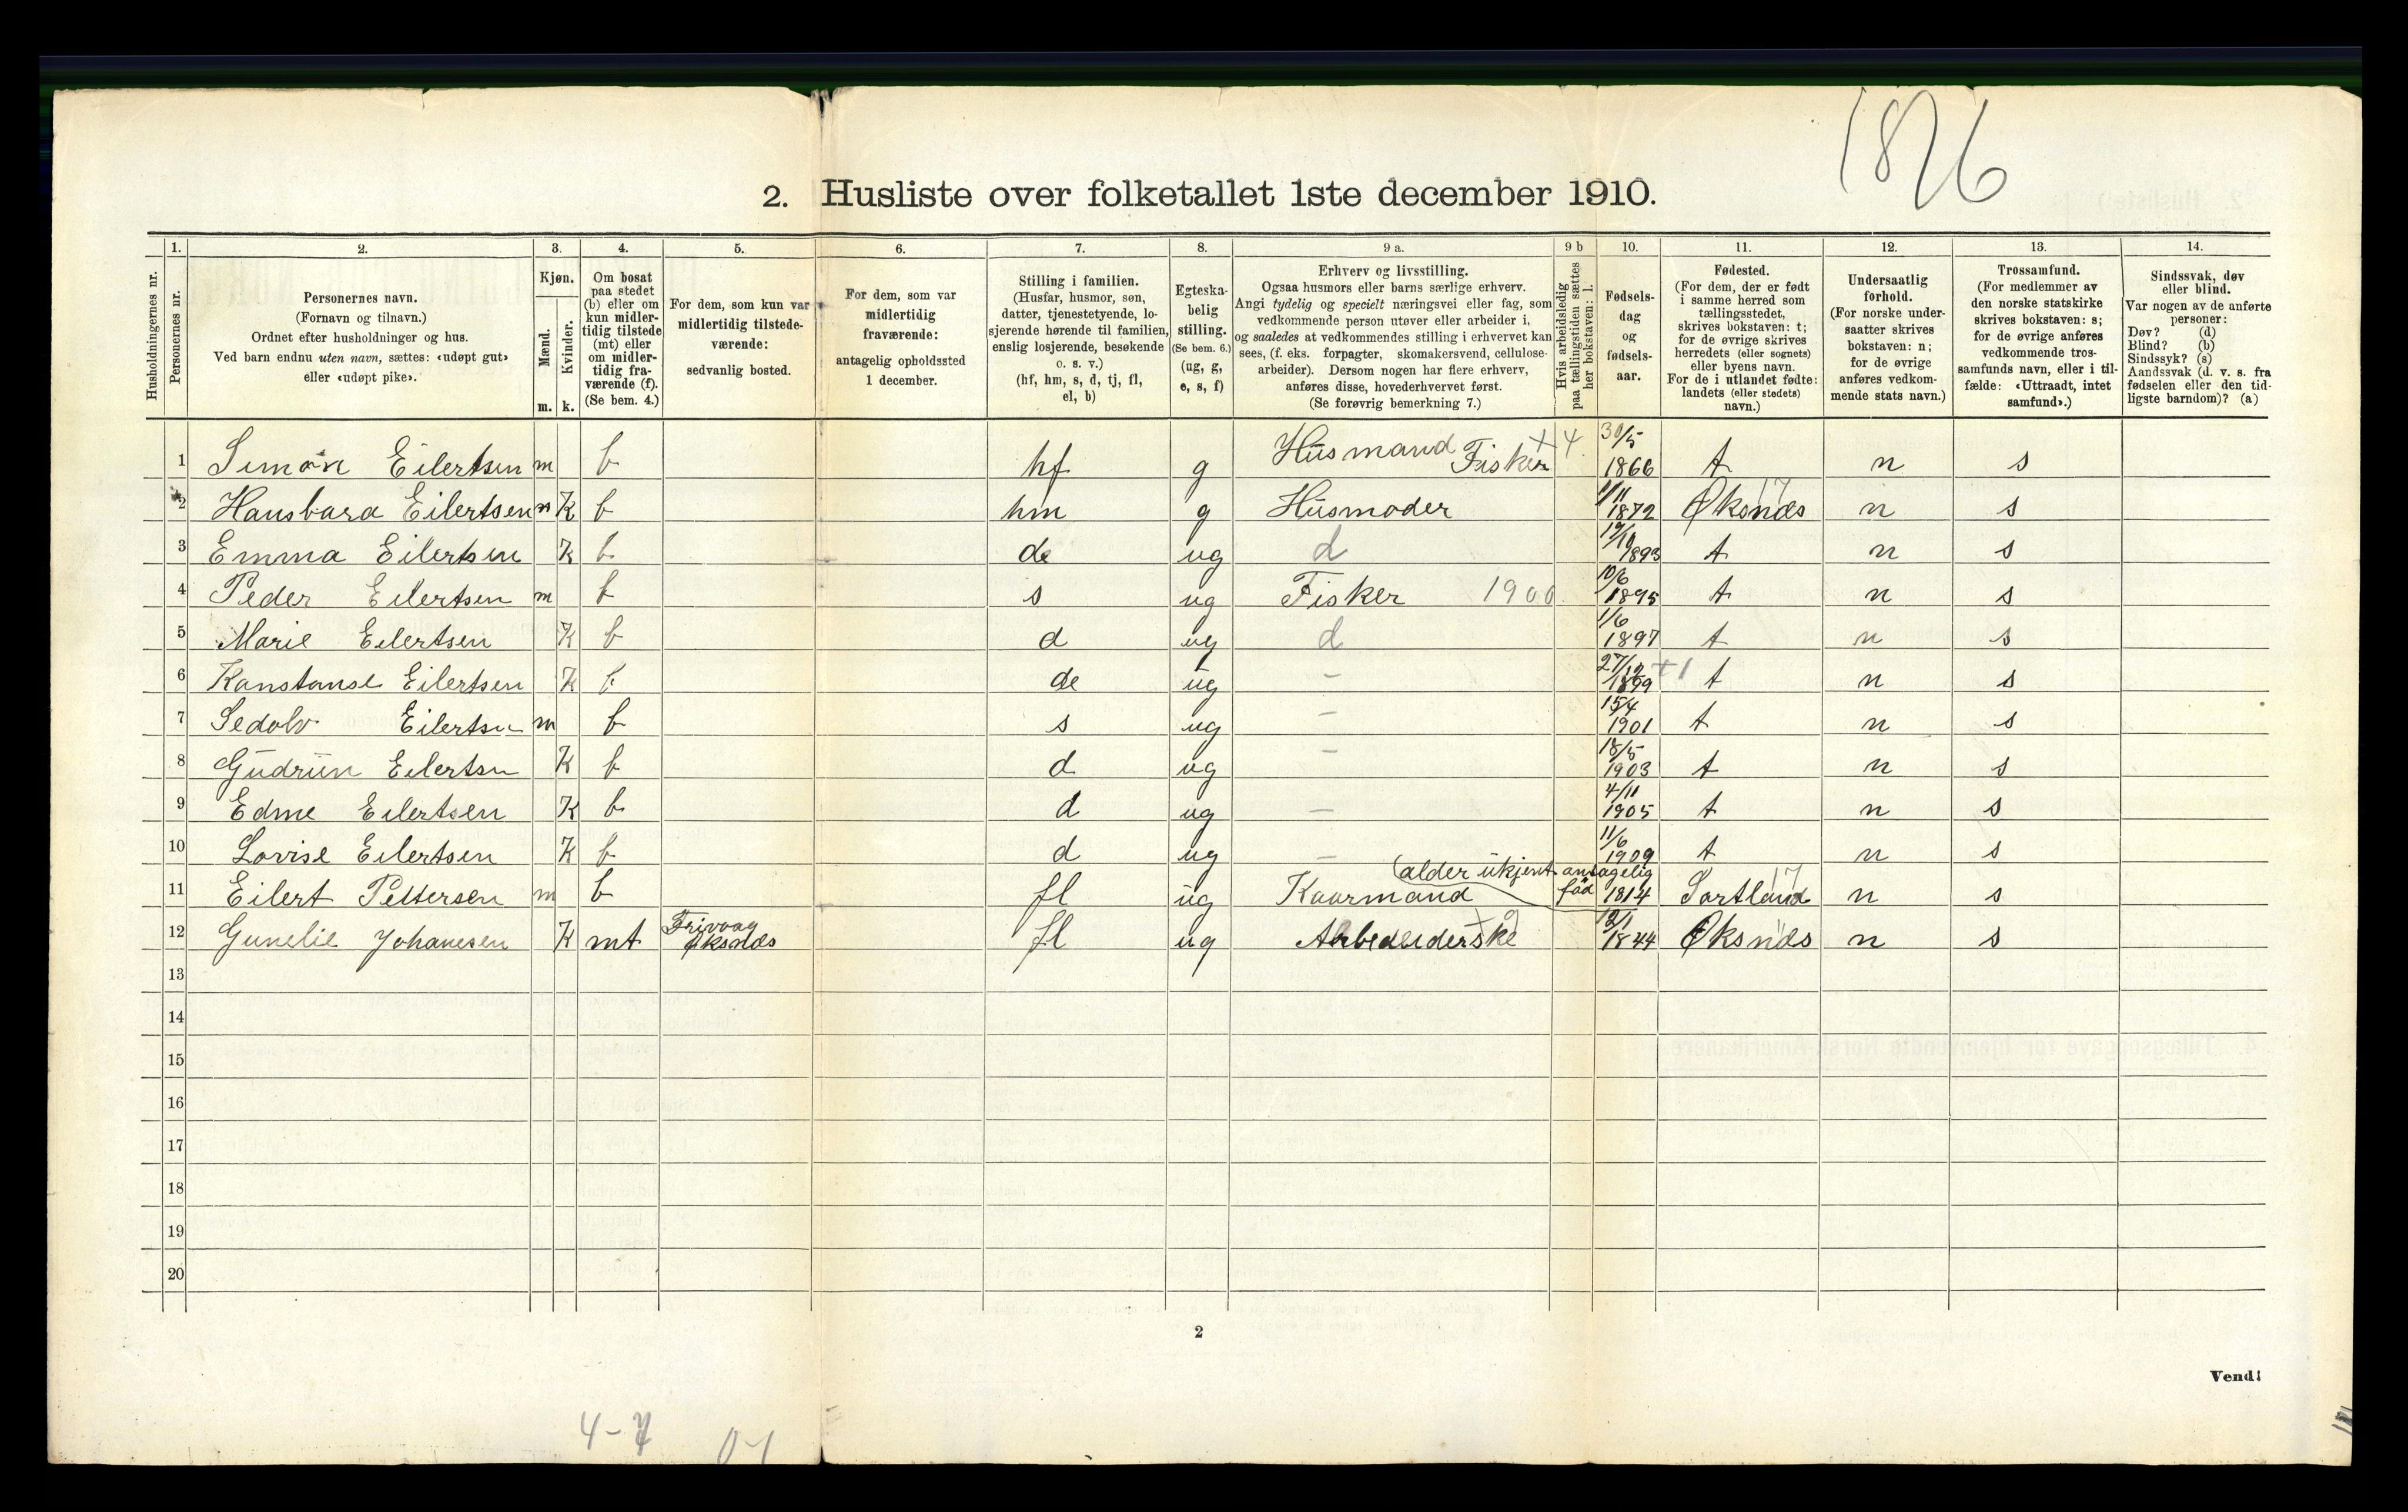 1876
2. Husliste over folketallet 1ste december 1910.
Husholdningernes nr.
1. Personernes nr.
2. Personernes navn.
(Fornavn og tilnavn.)
Ordnet efter husholdninger og hus.
Ved barn endnu uten navn, sættes: «udøpt gut»
eller «udøpt pike».
3. Kjøn.
Mænd. m.
Kvinder. k.
4. Om bosat
paa stedet
(b) eller om
kun midler-
tidig tilstede
(mt) eller
om midler-
tidig fra-
værende (f).
(Se bem. 4.)
5. For dem, som kun var
midlertidig tilstede-
værende:
sedvanlig bosted.
6. For dem, som var
midlertidig
fraværende:
antagelig opholdssted
1 december.
7. Stilling i familien.
(Husfar, husmor, søn,
datter, tjenestetyende, lo-
sjerende hørende til familien,
enslig losjerende, besøkende
o. s. v.)
(hf, hm, s, d, tj, fl,
el, b)
8. Egteska-
belig
stilling.
(Se bem. 6.)
(ug, g,
e, s, f)
9 a. Erhverv og livsstilling.
Ogsaa husmors eller barns særlige erhverv.
Angi tydelig og specielt næringsvei eller fag, som
vedkommende person utøver eller arbeider i,
og saaledes at vedkommendes stilling i erhvervet kan
sees, (f. eks. forpagter, skomakersvend, cellulose-
arbeider). Dersom nogen har flere erhverv,
anføres disse, hovederhvervet først.
(Se forøvrig bemerkning 7.)
9 b Hvis arbeidsledig
paa tællingstiden sættes
her bokstaven: l.
10. Fødsels-
dag
og
fødsels-
aar.
11. Fødested.
(For dem, der er født
i samme herred som
tællingsstedet,
skrives bokstaven: t;
for de øvrige skrives
herredets (eller sognets)
eller byens navn.
For de i utlandet fødte:
landets (eller stedets)
navn.)
12. Undersaatlig
forhold.
(For norske under-
saatter skrives
bokstaven: n;
for de øvrige
anføres vedkom-
mende stats navn.)
13. Trossamfund.
(For medlemmer av
den norske statskirke
skrives bokstaven: s;
for de øvrige anføres
vedkommende tros-
samfunds navn, eller i til-
fælde: «Uttraadt, intet
samfund».)
14. Sindssvak, døv
eller blind.
Var nogen av de anførte
personer:
Døv? (d)
Blind? (b)
Sindssyk? (s)
Aandssvak (d. v. s. fra
fødselen eller den tid-
ligste barndom)? (a)
1 Simon Eilertsen m b hf g Husmand Fisker + 4. 30/5 1866 t n s
2 Hansbara Eilertsen m K b hm g Husmoder 1/11 1872 Øksnæs 17 n s
3 Emma Eilertsen K b de ug d 19/10 1893 t n s
4 Peder Eilertsen m b s ug Fisker 1900 10/6 1895 t n s
5 Marie Eilertsen K b d ug d 1/6 1897 t n s
6 Kanstanse Eilertsen K b de ug - 27/12 1899 +1 t n s
7 Sedolv Eilertsn m b s ug - 15/4 1901 t n s
8 Gudrun Eilertsn K b d ug - 18/5 1903 t n s
9 Edme Eilertsen K b d ug - 4/11 1905 t n s
10 Lovise Eilertsen K b d ug - 11/6 1909 t n s
(alder ukjent antagelig
11 Eilert Pettersen m b fl ug Kaarmand fød 1814 Sortland 17 n s
12 Gunelie Johanesen K mt Frivaag Øksnæs fl ug 1844 Øksnæs n s
13
14
15
16
17
18
19
20
2
Vend!
4-7 0-1